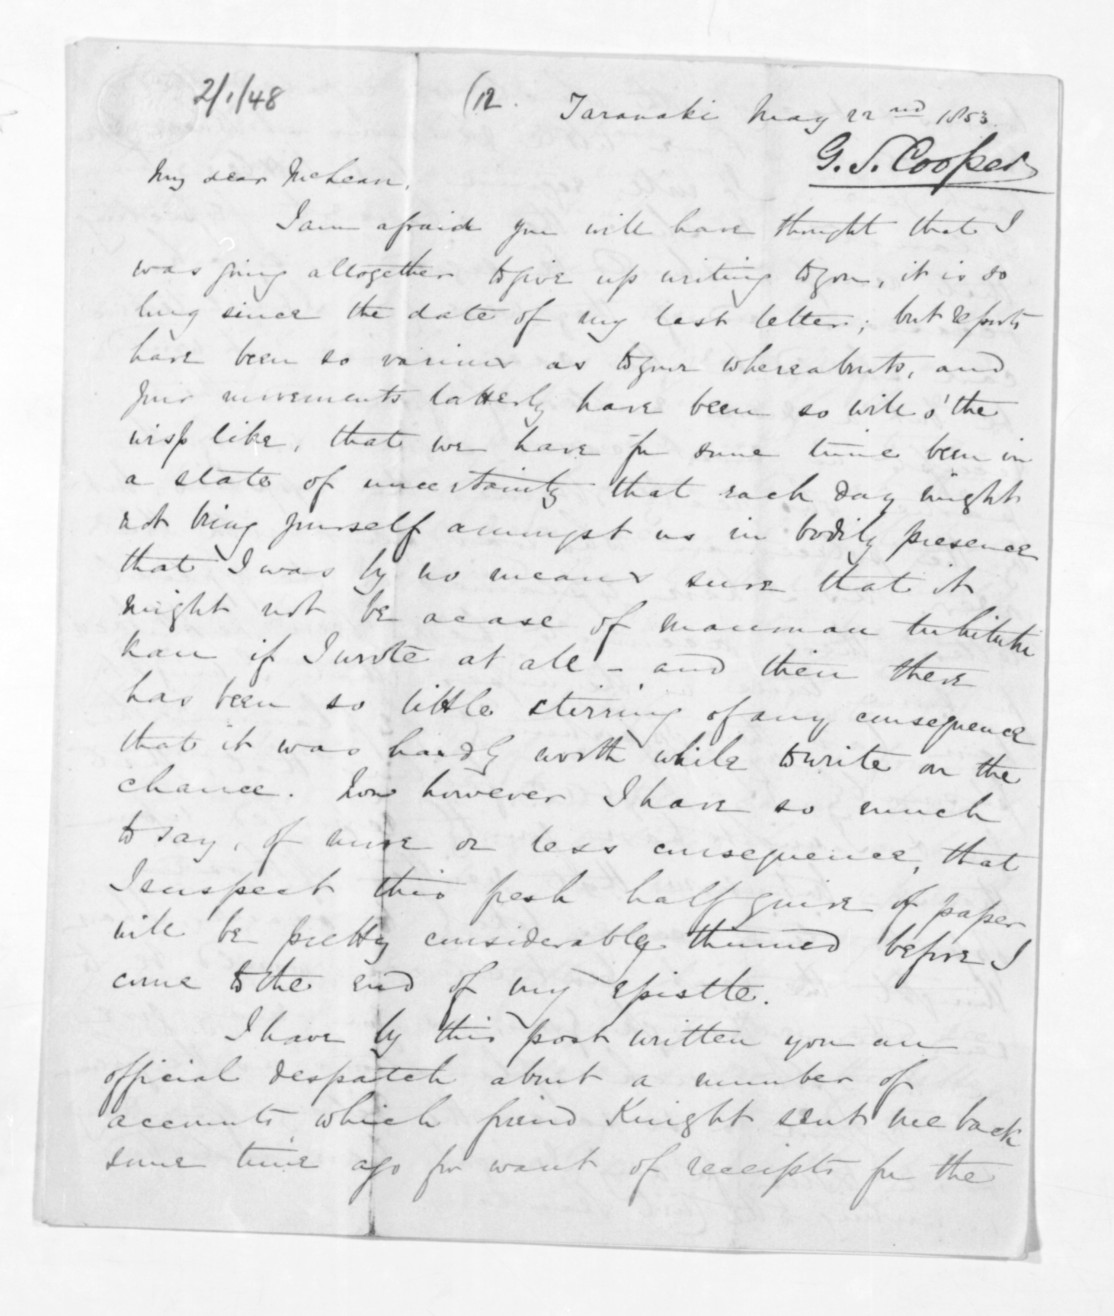 2/1/48
(12.
Taranaki May 22nd 1853.
G. S. Cooper
My dear McLean,
I am afraid you will have thought that I
was going altogether to give up writing to you, it is so
long since the date of my last letter; but reports
have been so various as to your whereabouts, and
your movements latterly have been so will o' the
wisp like, that we have for some time been in
a state of uncertainty that each day might
not bring yourself amongst us in bodily presence
that I was by no means sure that it
might not be a case of maumau
kau if I wrote at all – and then there
has been so little stirring of any consequence
that it was hardly worth while to write on the
chance. Now however I have so much
to say, of more or less consequence, that
I suspect this fresh half quire of paper
will be pretty considerably thinned before I
come to the end of my epistle.
I have by this post written you an
official despatch about a number of
accounts, which friend Knight sent me back
some time ago for want of receipts for the